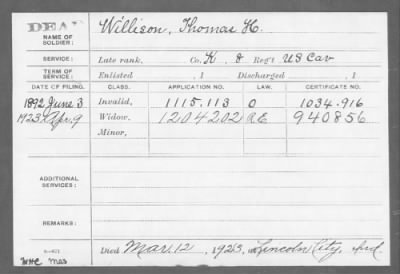 DEAD
NAME OF SOLDIER: Willison, Thomas H.
SERVICE: Late rank, Co. K, 8 Reg't US Cav
TERM OF SERVICE: Enlisted , 1 Discharged , 1
DATE OF FILING. CLASS. APPLICATION NO. LAW. CERTIFICATE NO.
1892 June 3 Invalid, 1115.113 O 1034.916
1923 Apr. 9 Widow, 1204202 940856
Minor,
ADDITIONAL SERVICES:
REMARKS:
Died Mar. 12, 1923, at Lincoln City, Ind.